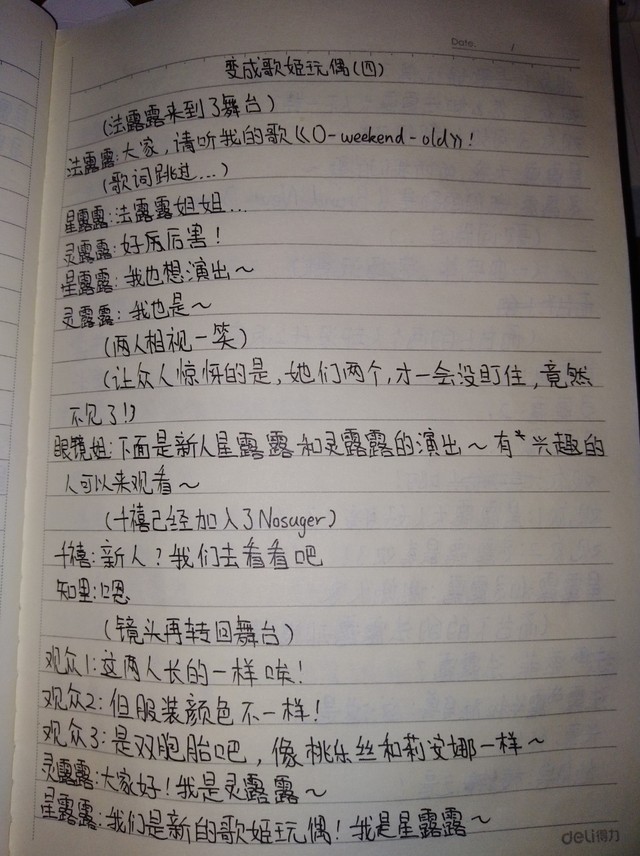 Date /
变成歌姬玩偶(四)
(法露露来到了舞台)
法露露:大家,请听我的歌《O-weekend-old》!
(歌词跳过...)
星露露:法露露姐姐...
灵露露:好厉厉害!
星露露:我也想演出~
灵露露:我也是~
(两人相视一笑)
(让众人惊讶的是,她们两个,才一会没盯住,竟然
不见了!)
眼镜姐:下面是新人星露露和灵露露的演出~有*兴趣的
人可以来观看~
(千禧已经加入了Nosuger)
千禧:新人?我们去看看吧
知里:嗯
(镜头再转回舞台)
观众1:这两人长的一样唉!
观众2:但服装颜色不一样!
观众3:是双胞胎吧,像桃乐丝和莉安娜一样~
灵露露:大家好!我是灵露露~
星露露:我们是新的歌姬玩偶!我是星露露~
deli得力